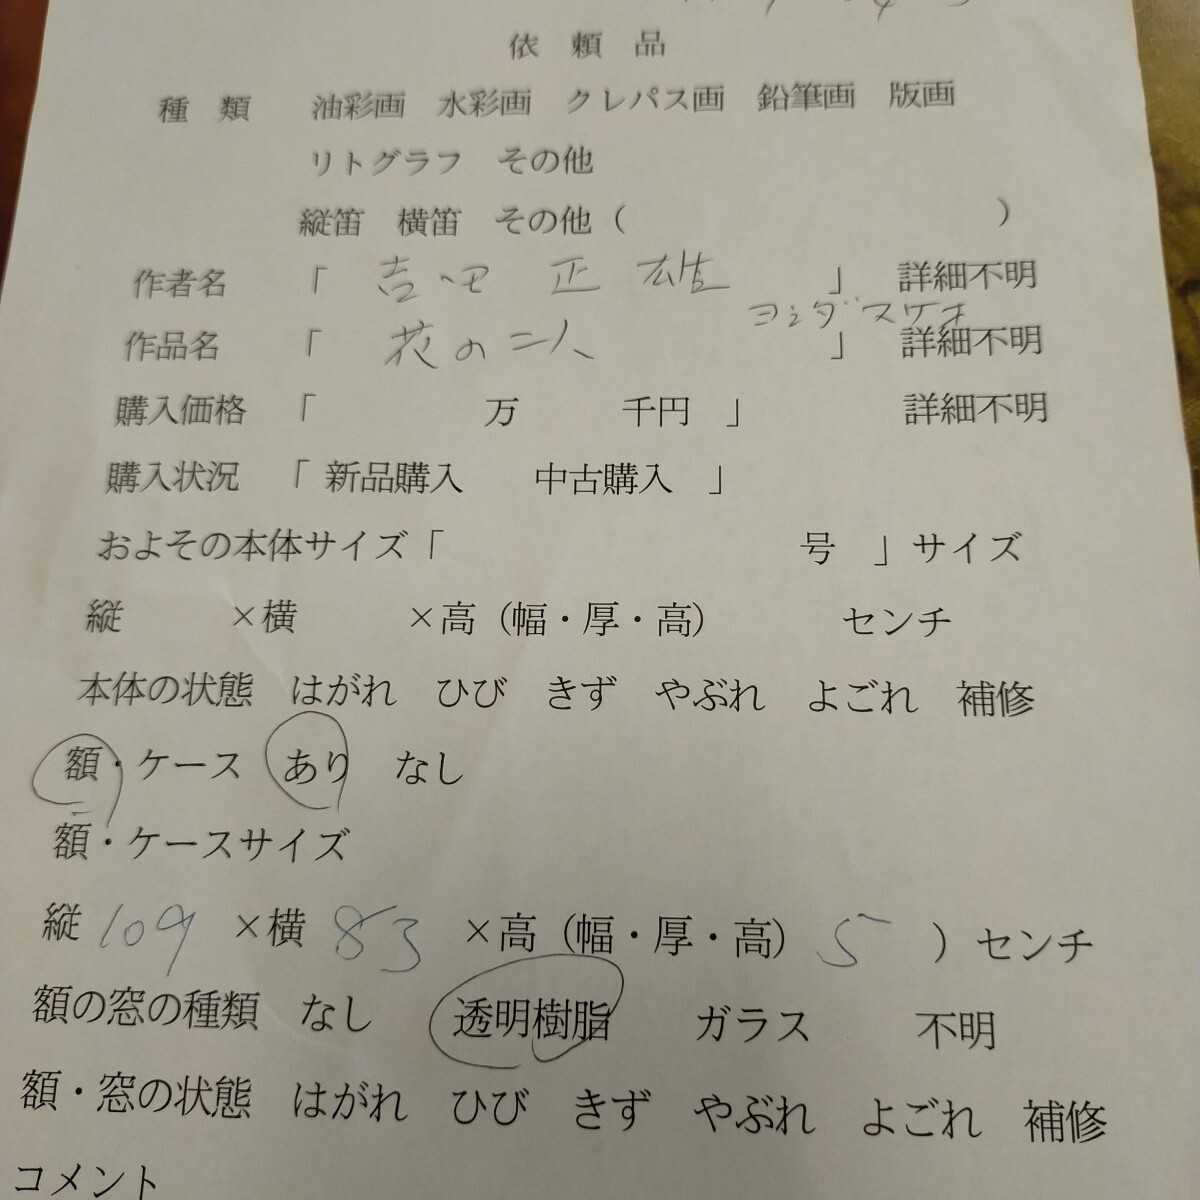 依頼品
種類 油彩画 水彩画 クレパス画 鉛筆画 版画
リトグラフ その他
縦笛 横笛 その他（ ）
作者名 「 吉田 正雄 」 詳細不明
ヨシダ スケオ
作品名 「 花の二人 」 詳細不明
購入価格 「 万 千円 」 詳細不明
購入状況 「 新品購入 中古購入 」
およその本体サイズ「 号 」サイズ
縦 ×横 ×高（幅・厚・高） センチ
本体の状態 はがれ ひび きず やぶれ よごれ 補修
額・ケース あり なし
額・ケースサイズ
縦 109 ×横 83 ×高（幅・厚・高） 5 ）センチ
額の窓の種類 なし 透明樹脂 ガラス 不明
額・窓の状態 はがれ ひび きず やぶれ よごれ 補修
コメント